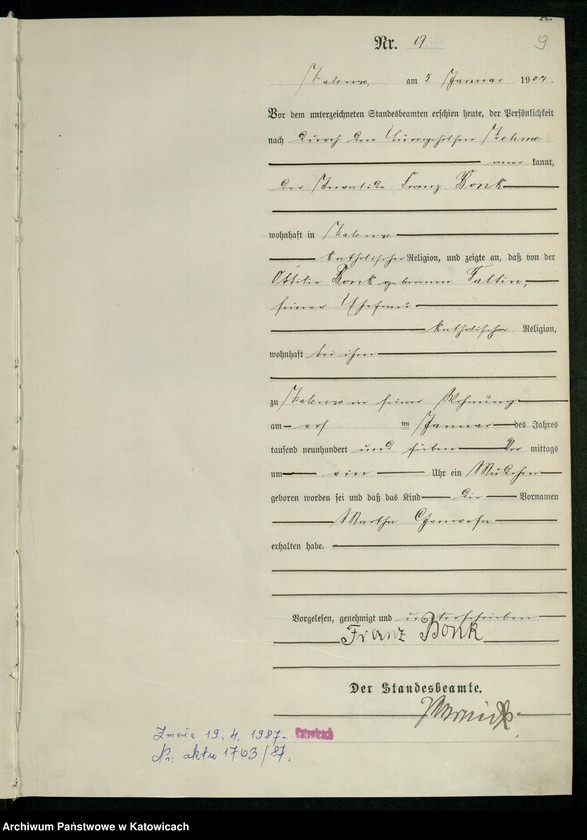 Nr. 19
9
Zalenze, am 5 Januar 1907.
Vor dem unterzeichneten Standesbeamten erschien heute, der Persönlichkeit
nach durch den
kannt,
der Invalide Franz Bonk
wohnhaft in Zalenze
katholischer Religion, und zeigte an, daß von der
Ottilie Bonk geborenen Taltin,
seiner Ehefrau
katholischer Religion,
wohnhaft bei ihm
zu Zalenze in seiner Wohnung
am ten Januar des Jahres
tausend neunhundert und sieben Vor mittags
um ein Uhr ein Mädchen
geboren worden sei und daß das Kind die Vornamen
Martha Genovefa
erhalten habe.
Vorgelesen, genehmigt und unterschrieben
Franz Bonk
Der Standesbeamte.
Zmarła 19.4.1987. Katowicach
Nr. aktu 1763/87.
Archiwum Państwowe w Katowicach